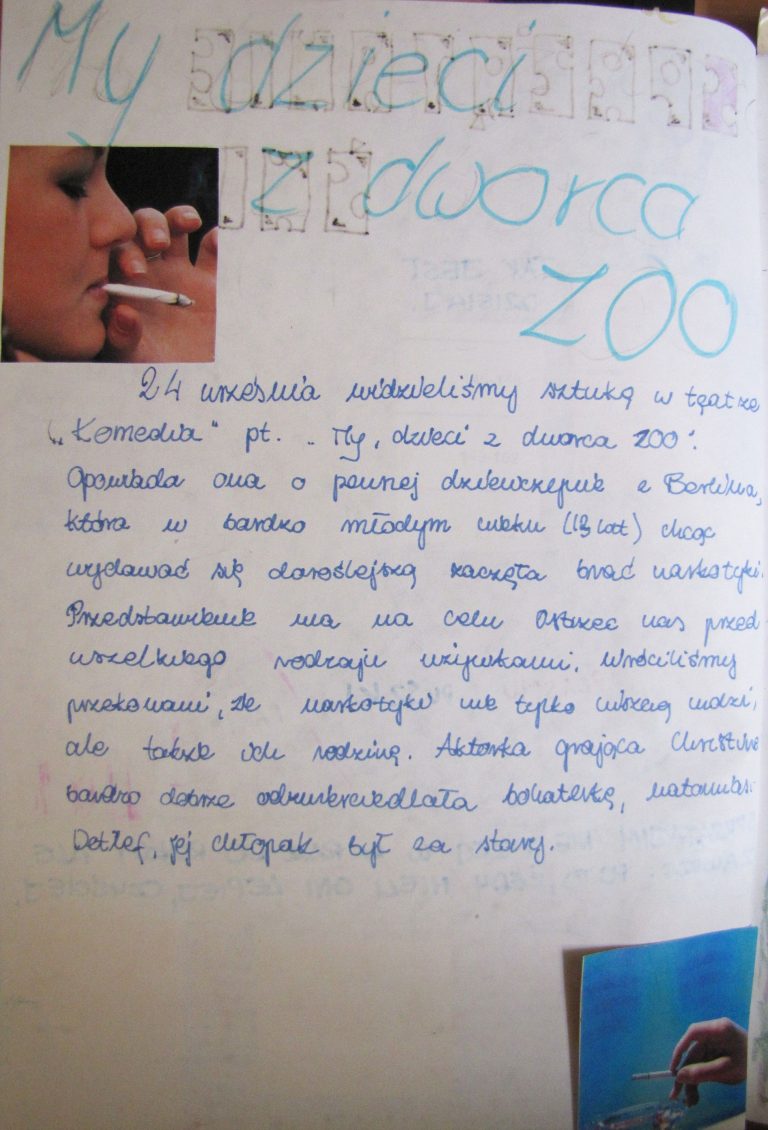 My dzieci
z dworca
ZOO
24 września widzieliśmy sztukę w teatrze
„Komedia" pt. „My, dzieci z dworca ZOO".
Opowiada ona o pewnej dziewczynie z Berlina,
która w bardzo młodym wieku (13 lat) chcąc
wydawać się doroślejszą zaczęła brać narkotyki.
Przedstawienie ma na celu ostrzec nas przed
wszelkiego rodzaju używkami. Wróciliśmy
przekonani, że narkotyki nie tylko niszczą ludzi,
ale także ich rodzinę. Aktorka grająca Christine
bardzo dobrze odzwierciedlała bohaterkę, natomiast
Detlef, jej chłopak był za stary.